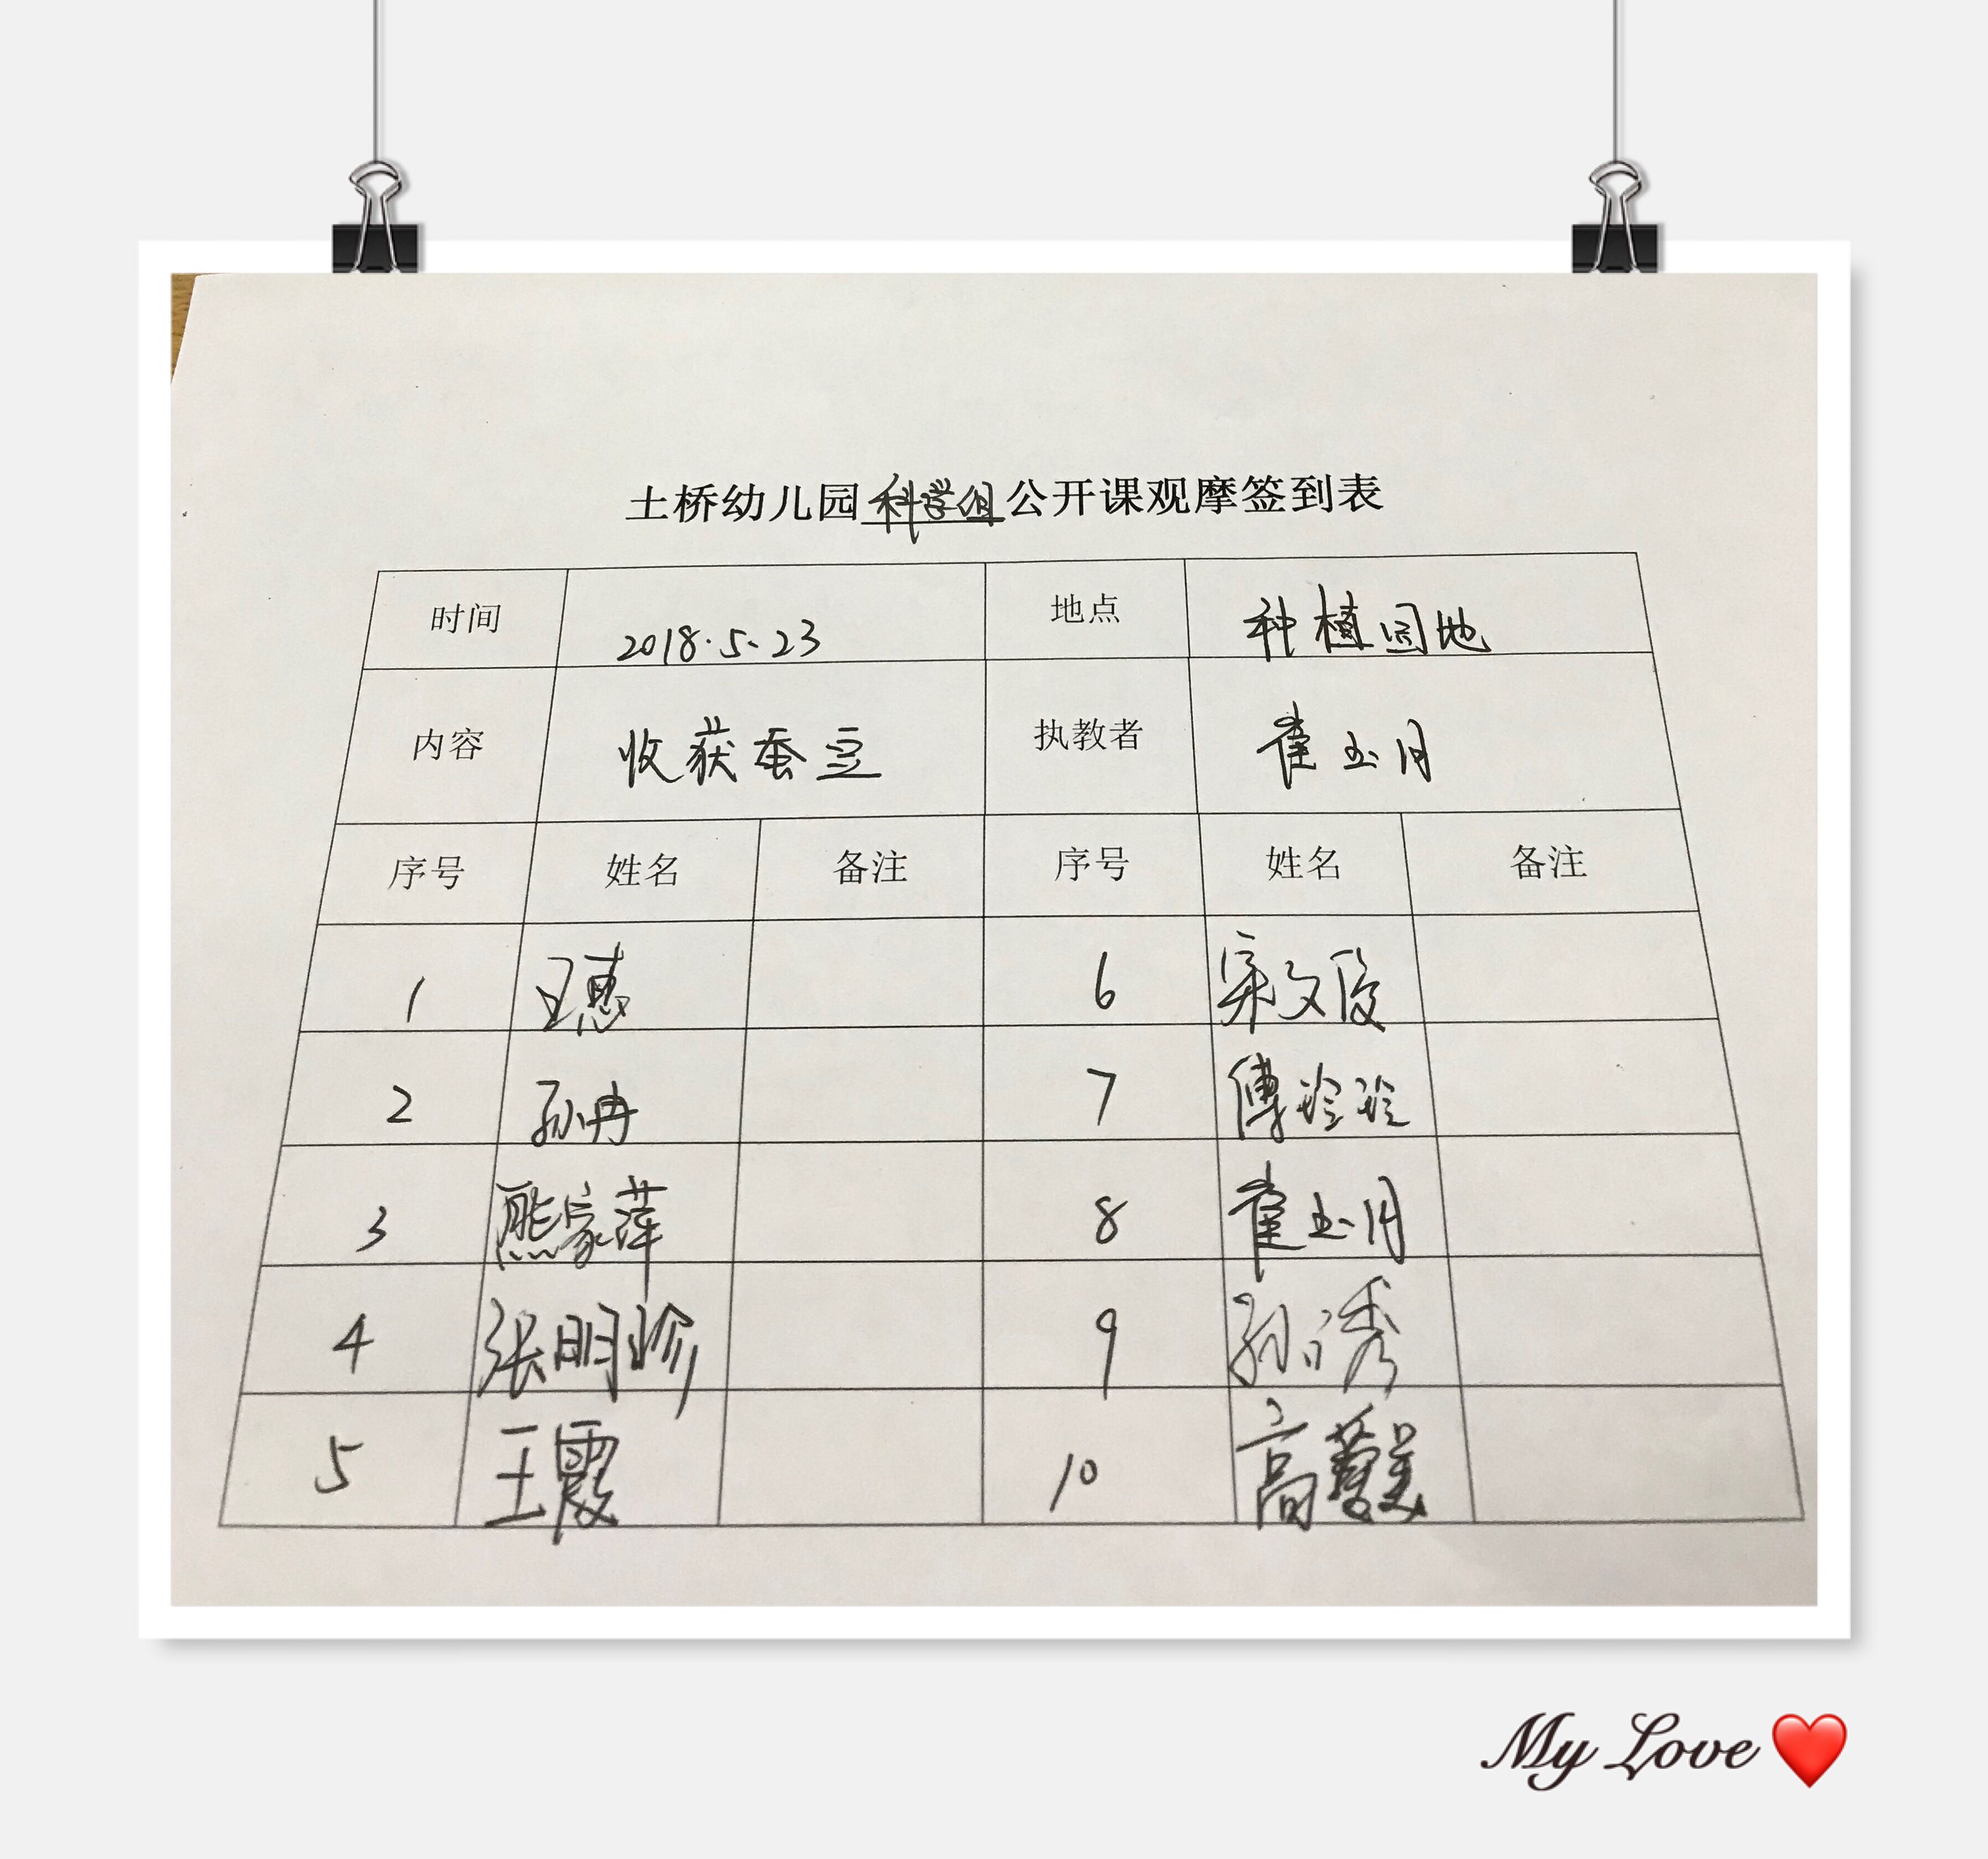 土桥幼儿园科学组公开课观摩签到表
时间 2018.5.23 地点 种植园地
内容 收获蚕豆 执教者 崔玉月
序号 姓名 备注 序号 姓名 备注
1 王惠 6 宋文
2 孙冉 7 傅玲玲
3 熊家萍 8 崔玉月
4 张明珍 9 孙秀
5 王霞 10 高美
My Love ❤️